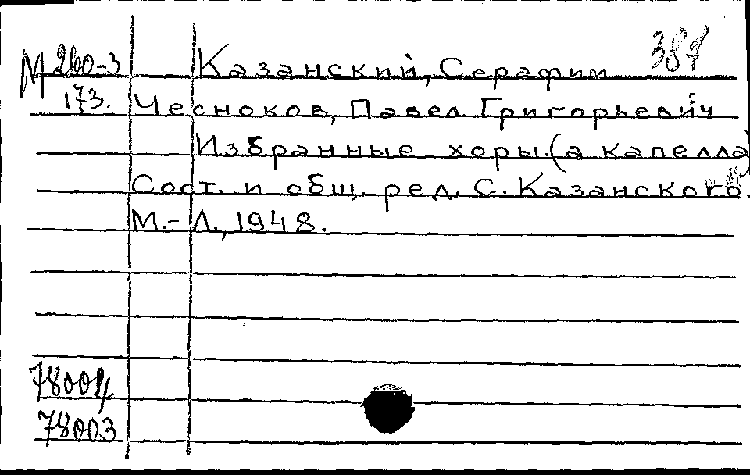 М 260-3 Казанский, Серафим 387
173. Чесноков, Павел Григорьевич
Избранные хоры. (а капелла)
Сост. и общ. ред. С. Казанского.
М.-Л., 1948.
78004
78003